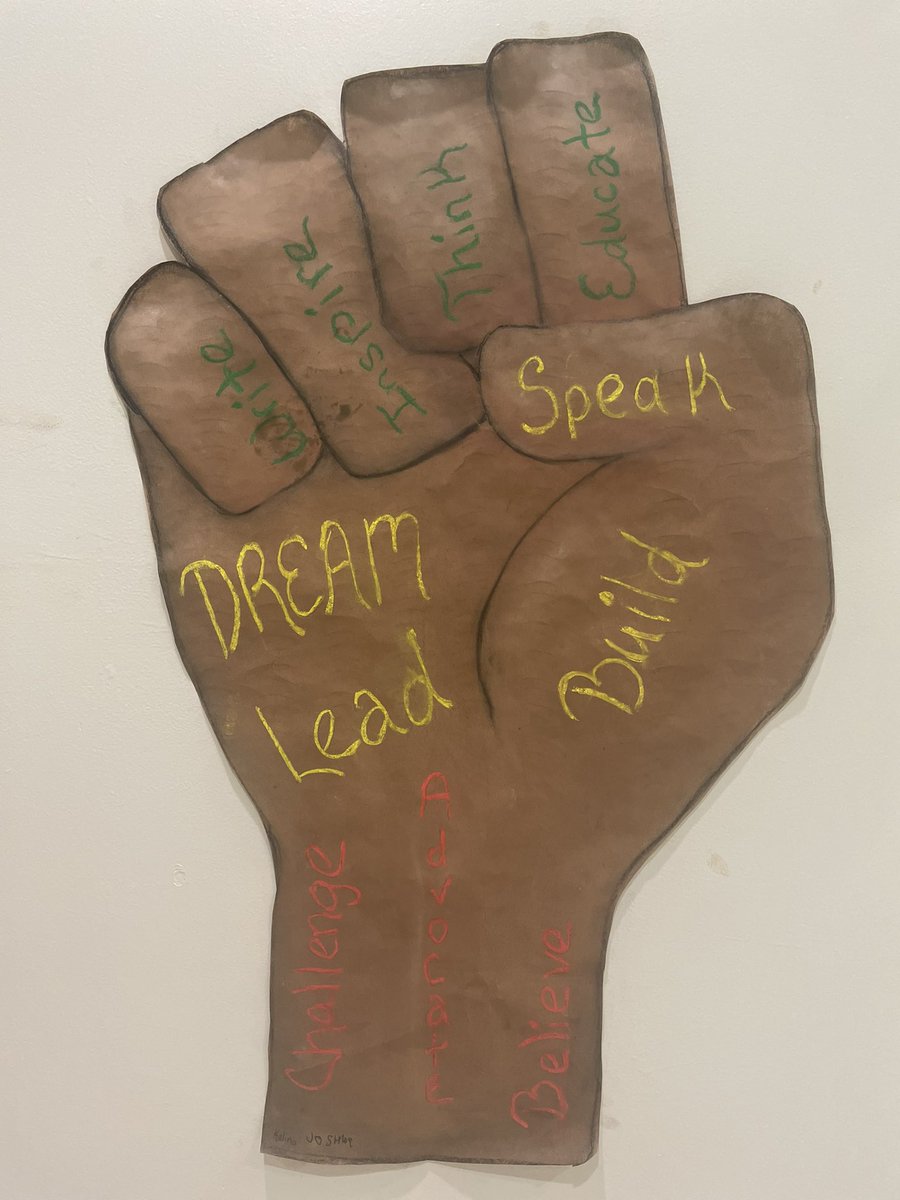 Write
Inspire
Think
Educate
Speak
DREAM
Build
Lead
Challenge
Advocate
Believe